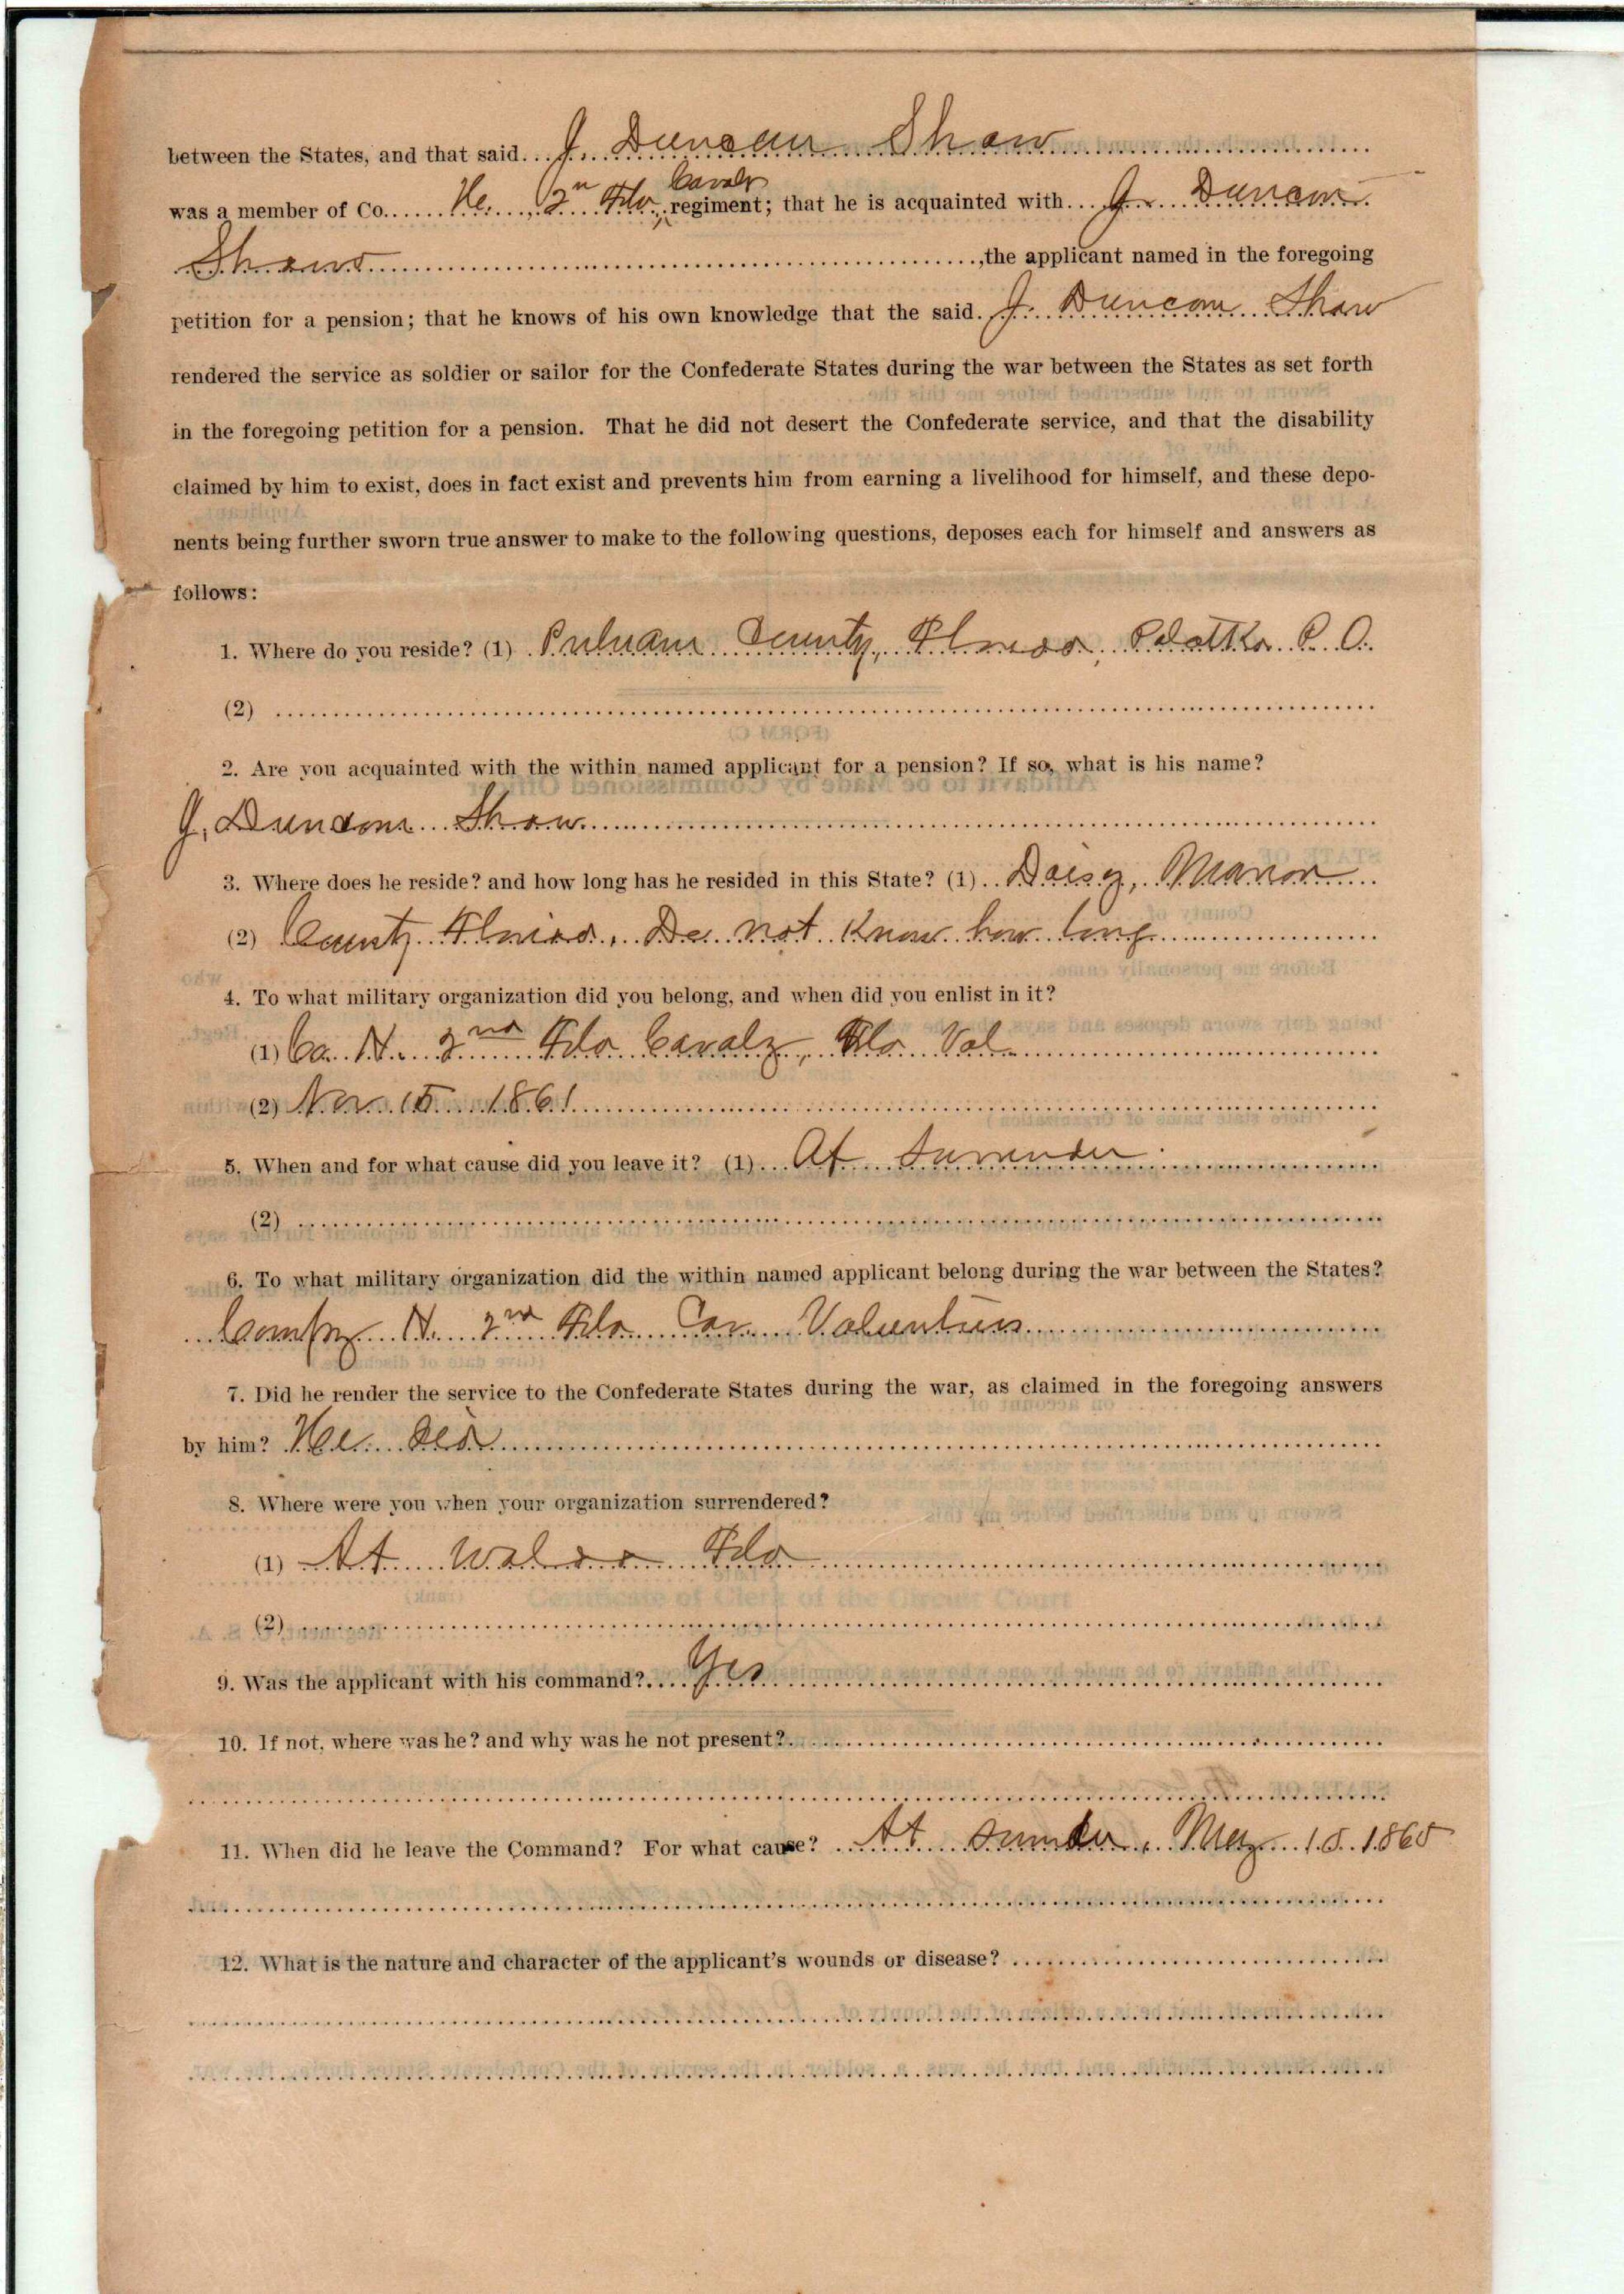 between the States, and that said J. Duncan Shaw
was a member of Co. 2n Fla Cavalr regiment; that he is acquainted with J. Duncan
Shaw, the applicant named in the foregoing
petition for a pension; that he knows of his own knowledge that the said J. Duncan Shaw
rendered the service as soldier or sailor for the Confederate States during the war between the States as set forth
in the foregoing petition for a pension. That he did not desert the Confederate service, and that the disability
claimed by him to exist, does in fact exist and prevents him from earning a livelihood for himself, and these depo-
nents being further sworn true answer to make to the following questions, deposes each for himself and answers as
follows:
1. Where do you reside? (1) Putnam County, Florida, Palatka P. O.
(2)
2. Are you acquainted with the within named applicant for a pension? If so, what is his name?
J. Duncan Shaw
3. Where does he reside? and how long has he resided in this State? (1) Daisy, Marion
(2) County Florida, Do not Know how long
4. To what military organization did you belong, and when did you enlist in it?
(1) Co. H. 2nd Fla Cavaly, Fla Vol
(2) Nov 15 1861
5. When and for what cause did you leave it? (1) At Surrender
(2)
6. To what military organization did the within named applicant belong during the war between the States?
Compy H. 2nd Fla Cav Volunteers
7. Did he render the service to the Confederate States during the war, as claimed in the foregoing answers
by him? He did
8. Where were you when your organization surrendered?
(1) At Waldo Fla
(2)
9. Was the applicant with his command? Yes
10. If not, where was he? and why was he not present?
11. When did he leave the Command? For what cause? At May 15 1865
12. What is the nature and character of the applicant's wounds or disease?